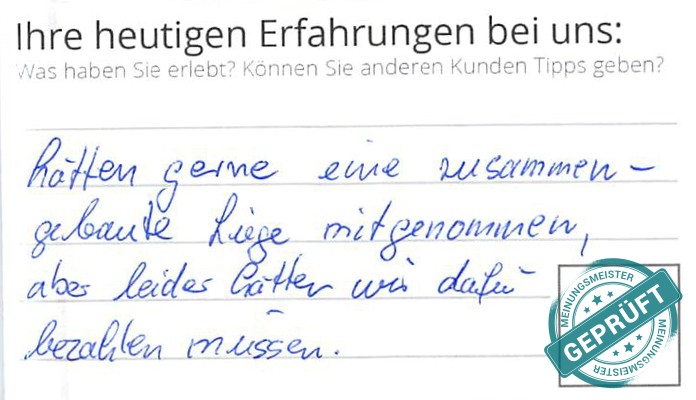 Ihre heutigen Erfahrungen bei uns:
Was haben Sie erlebt? Können Sie anderen Kunden Tipps geben?
hätten gerne eine zusammen-
gebaute Liege mitgenommen,
aber leider hätten wir dafür
bezahlen müssen.
MEINUNGSMEISTER
GEPRÜFT
MEINUNGSMEISTER
MEINUNGSMEISTER